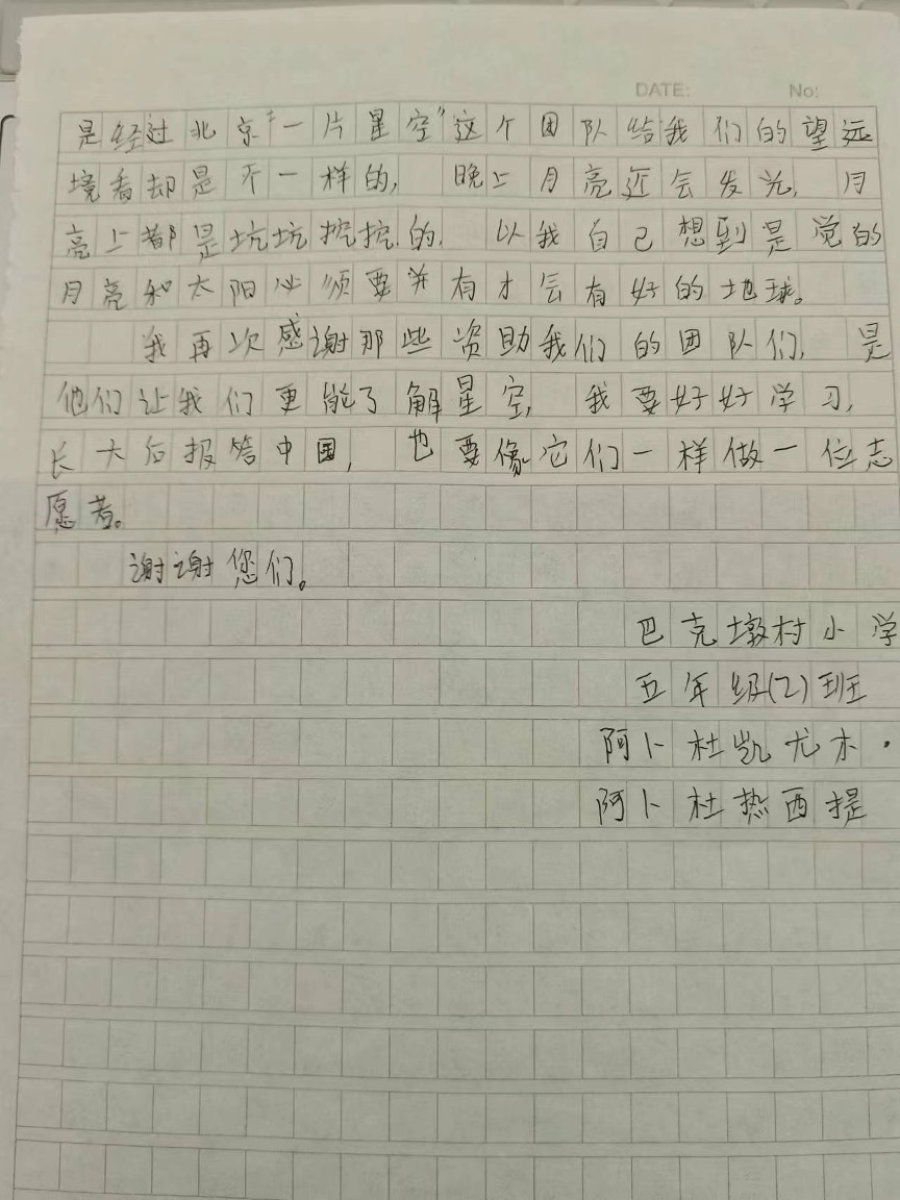 DATE: No:
是经过北京“一片星空”这个团队给我们的望远
境看却是不一样的, 晚上月亮还会发光, 月
亮上都是坑坑挖挖的, 以我自己想到是觉的
月亮和太阳必须要并有才会有好的地球。
我再次感谢那些资助我们的团队们, 是
他们让我们更能了解星空, 我要好好学习,
长大后报答中国, 也要像它们一样做一位志
愿者。
谢谢您们。
巴克墩村小学
五年级(2)班
阿卜杜凯尤木·
阿卜杜热西提